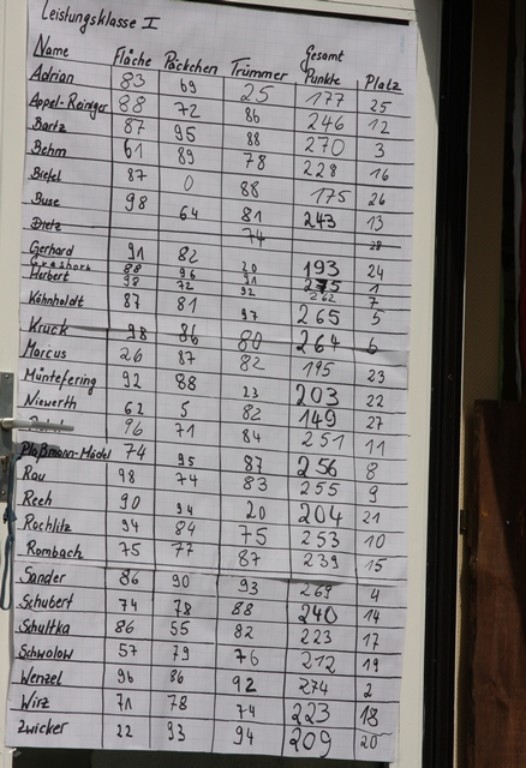 Leistungsklasse I
Name Fläche Päckchen Trümmer Gesamt Punkte Platz
Adrian 83 69 25 177 25
Appel-Reiniger 88 72 86 246 12
Bartz 87 95 88 270 3
Behm 61 89 78 228 16
Biefel 87 0 88 175 26
Buse 98 64 81 243 13
Dietz 74 28
Gerhard 91 82 20 193 24
Grashorn 88 96 91 275 1
Herbert 98 72 92 262 7
Köhnholdt 87 81 97 265 5
Kruck 98 86 80 264 6
Marcus 26 87 82 195 23
Müntefering 92 88 23 203 22
Niewerth 62 5 82 149 27
96 71 84 251 11
Plaßmann-Mädel 74 95 87 256 8
Rau 98 74 83 255 9
Reeh 90 94 20 204 21
Rochlitz 94 84 75 253 10
Rombach 75 77 87 239 15
Sander 86 90 93 269 4
Schubert 74 78 88 240 14
Schultka 86 55 82 223 17
Schwolow 57 79 76 212 19
Wenzel 96 86 92 274 2
Wirz 71 78 74 223 18
Zwicker 22 93 94 209 20